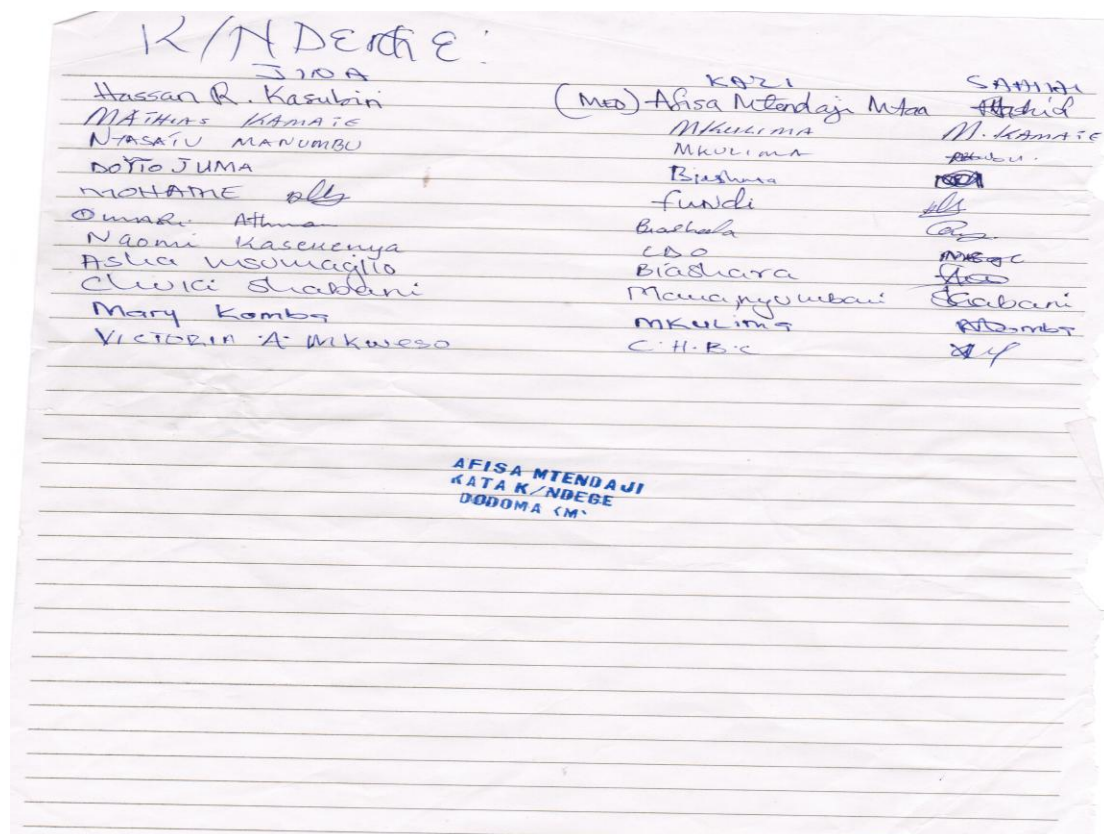 K/NDEGE:
JINA KAZI SAHIHI
Hassan R. Kasubiri (MEO) Afisa Mtendaji Mtaa
MATHIAS KAMATE MKULIMA M. KAMATE
MANUMBU MKULIMA
DOTTO JUMA Biashara
MOHAME fundi
OMARI Athman Biashara
Naomi CDO
Asha Biashara
Shabani Mama Shabani
Mary Komba MKULIMA Komba
VICTORIA A. MKWESO C.H.B.C
AFISA MTENDAJI
KATA K/NDEGE
DODOMA (M)